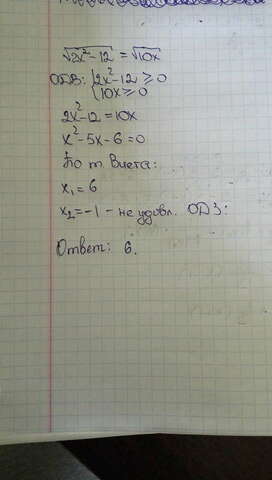 √2x²-12 = √10x
ОДЗ: {2x²-12 ≥ 0
{10x ≥ 0
2x²-12 = 10x
x²-5x-6 = 0
По т. Виета:
x₁ = 6
x₂ = -1 - не удовл. ОДЗ:
Ответ: 6.